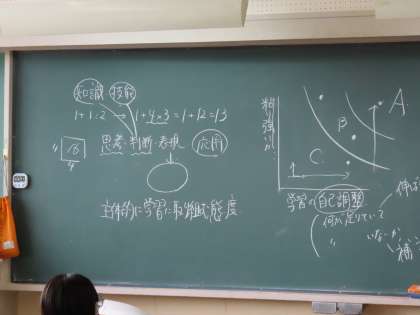 知識 技能
1+1=2 → 1+4×3=1+12=13
思考・判断・表現 応用
主体的に学習に取り組む態度
粘り強い
A
B
C
学習の自己調整
何が足りていて
〃 いないか
伸ば
補